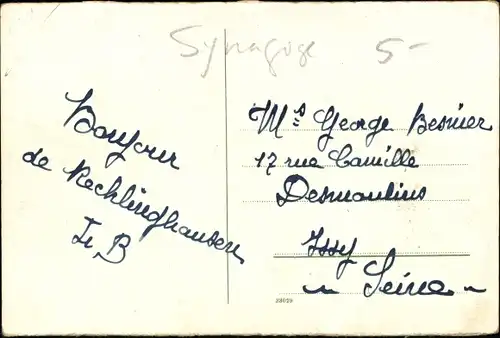 Synagoge 5-
Bonjour
de Recklinghausen
Ms George Besnier
17 rue Camille
Desmoulins
Issy
~ Seine ~